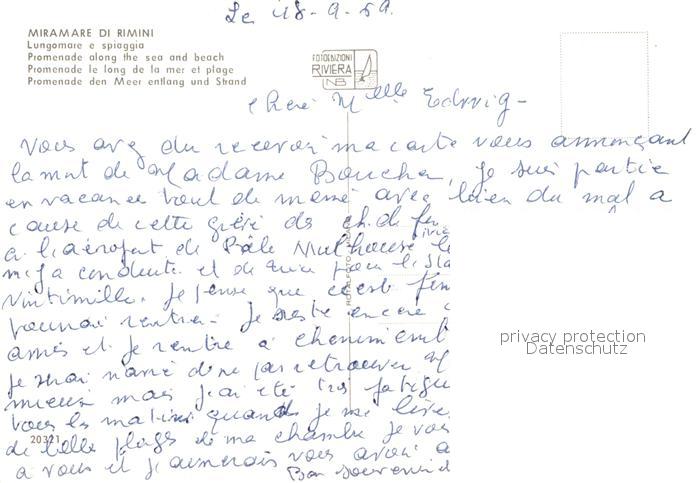 Le 18-9-69.
MIRAMARE DI RIMINI
Lungomare e spiaggia
Promenade along the sea and beach
Promenade le long de la mer et plage
Promenade den Meer entlang und Strand
FOTOEDIZIONI
RIVIERA
NB
Chère Melle Edwig -
Vous avez du recevoir ma carte vous annonçant
la mort de Madame Boucher, je suis partie
en vacance tout de même avec bien du mal a
cause de cette grève des ch. de fer
a l'aéroport de Bâle Mulhouse
m'a conduite et de
Vintimille. Je pense que c'est fini
pourrai rentrer. Je reste encore
amis et je rentre a
je serai
mieux mais j'ai été très fatigu
tous les matins quand je me lève
de belle plage de ma chambre je
20321
a vous et j'aimerais vous avoir a
Bon souvenir d
privacy protection
Datenschutz